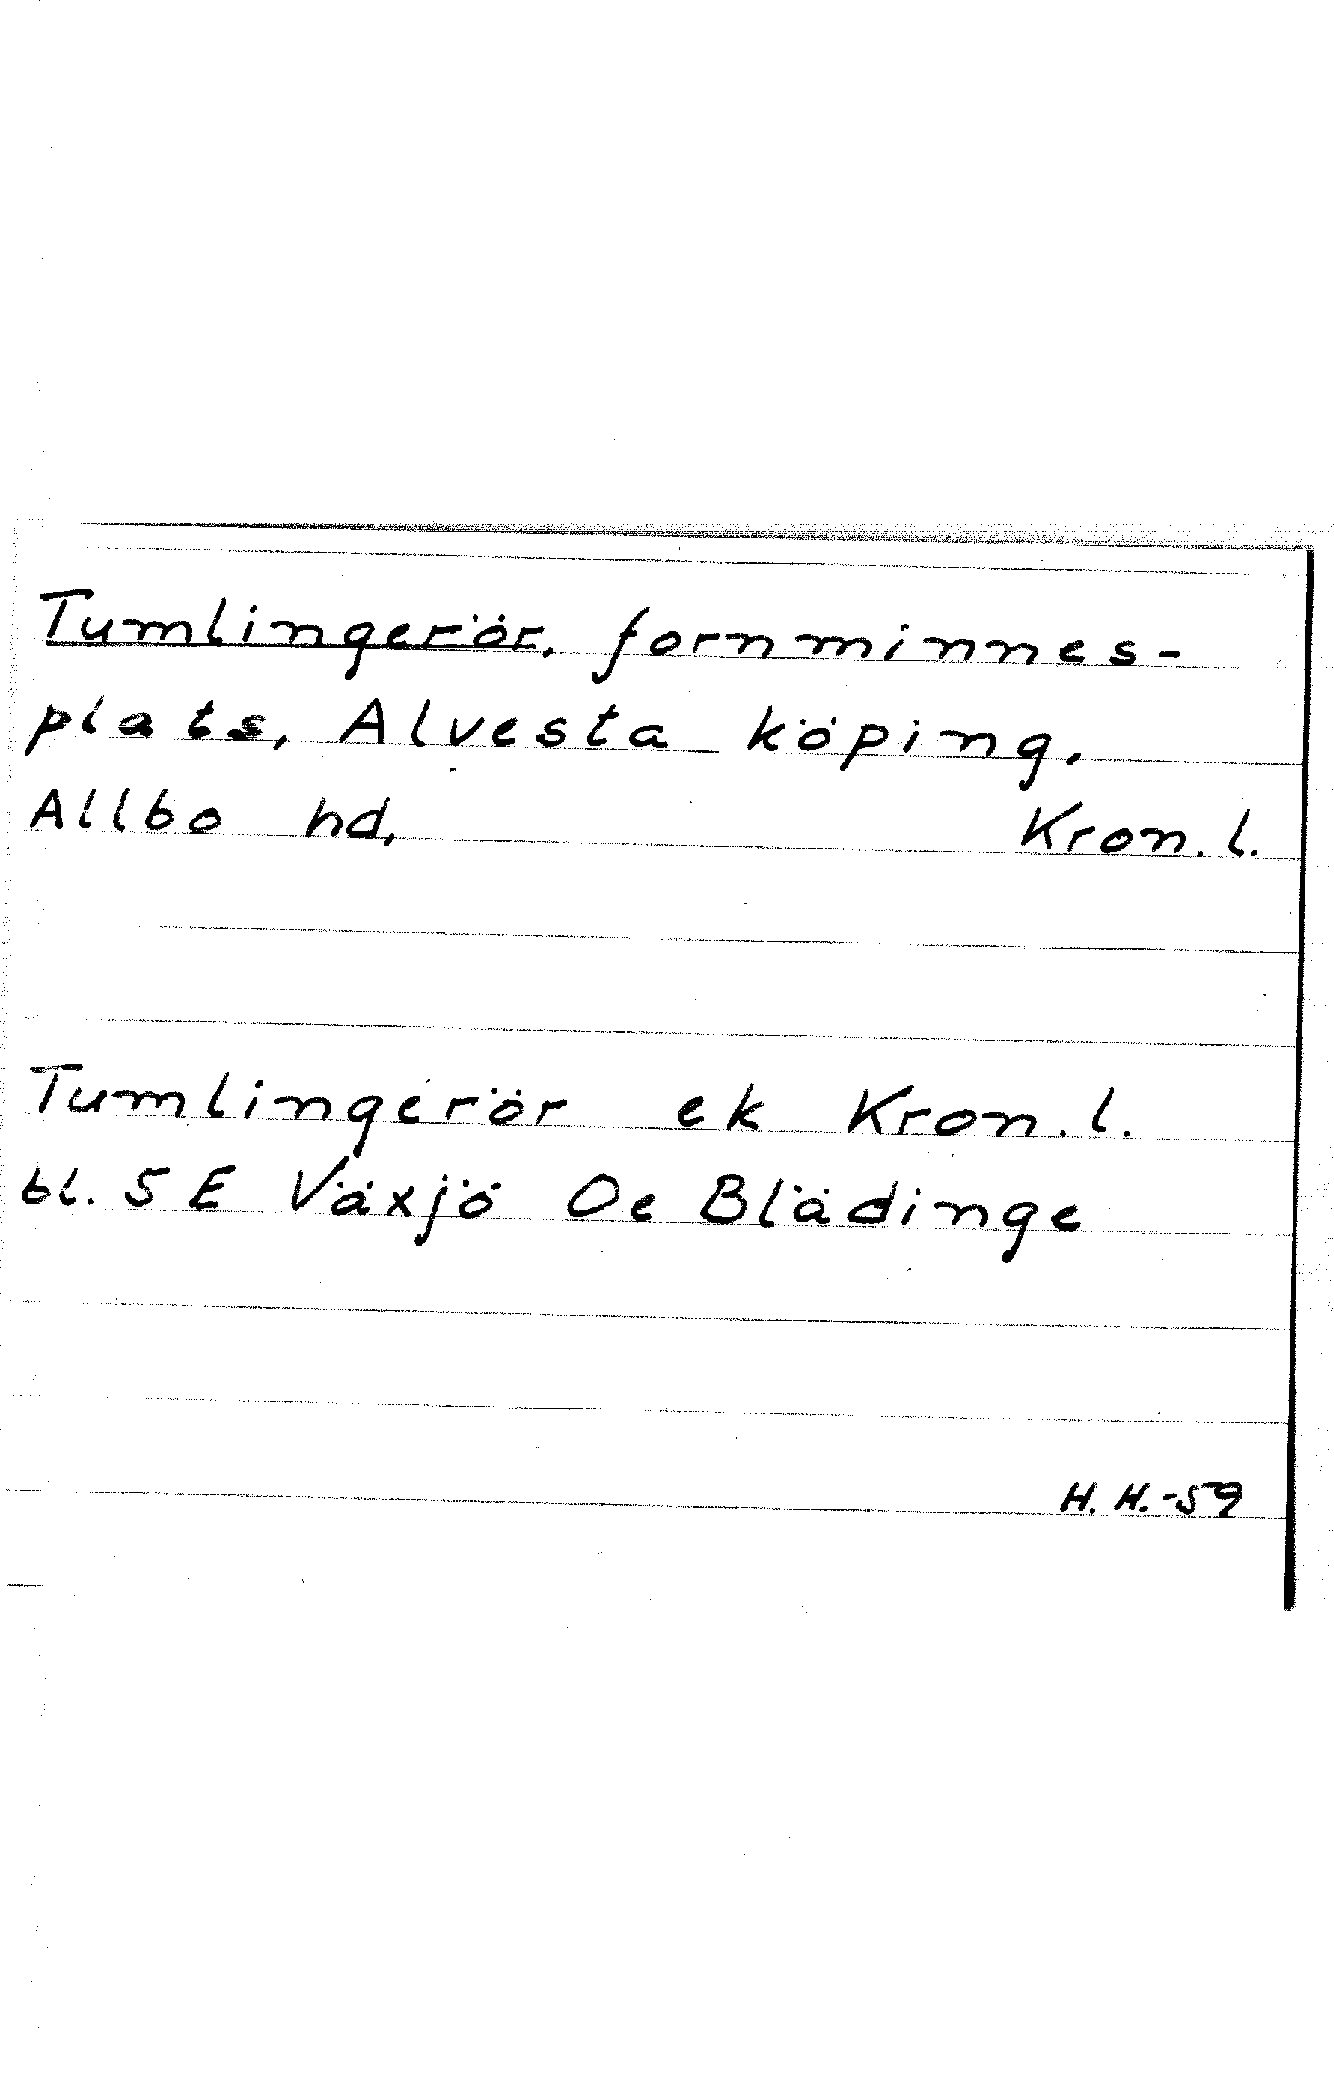 Tumlingerör, fornminnes-
plats, Alvesta köping,
Allbo hd, Kron. l.
Tumlingerör ek Kron. l.
bl. 5 E Växjö Oe Blädinge
H. H. -59